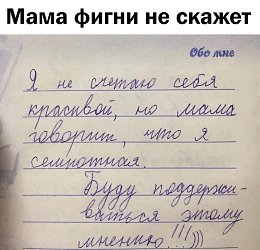 Мама фигни не скажет
Обо мне
Я не считаю себя
красивой, но мама
говорит, что я
семпотная.
Буду поддержи-
ваться этому
мнению!!!))